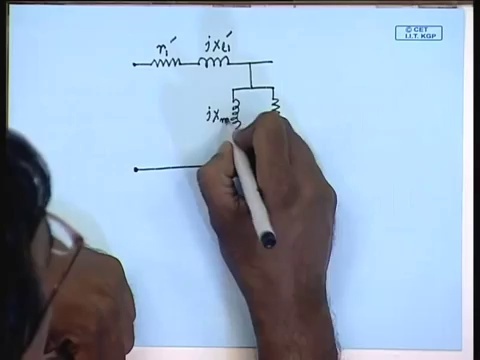 © CET
I.I.T. KGP
r₁′ jxℓ₁′
jxₘ